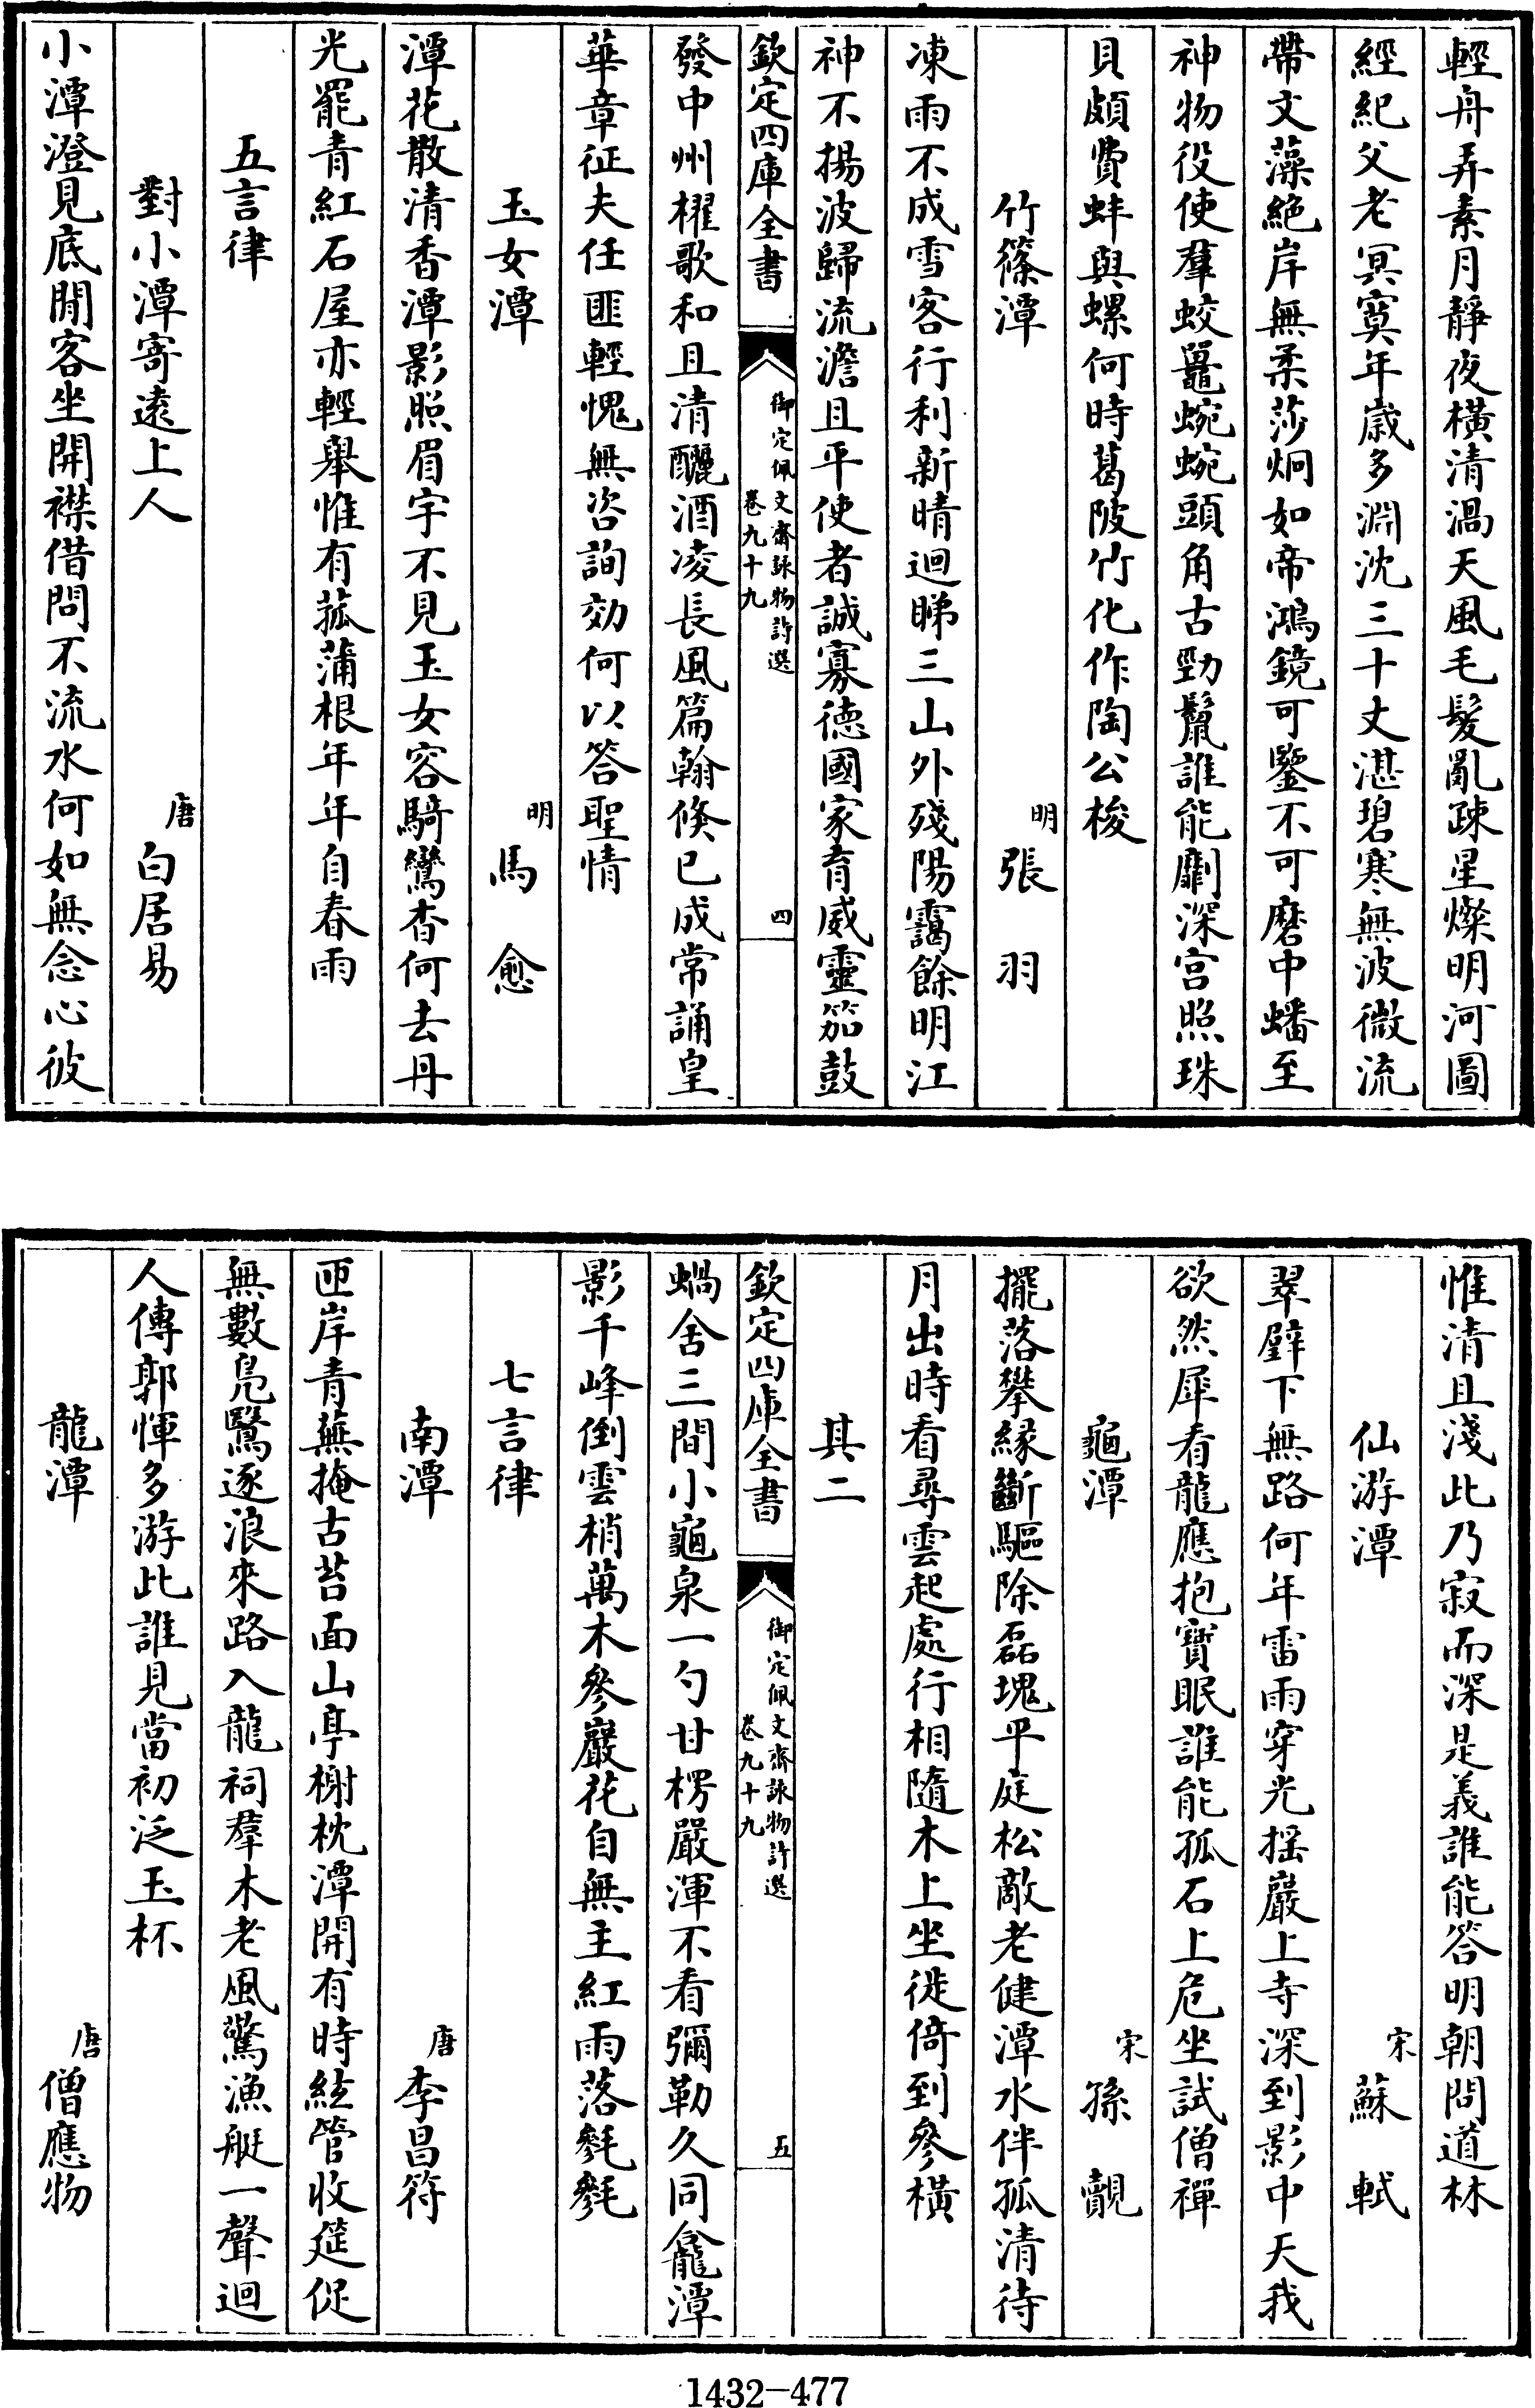 輕舟弄素月靜夜橫清渦天風毛髮亂疎星燦明河圖
經紀父老冥寞年歲多淵沈三十丈湛碧寒無波微流
帶文藻絕岸無柔莎炯如帝鴻鏡可鑒不可磨中蟠至
神物役使羣蛟鼉蜿蜿頭角古勁鬣誰能劘深宫照珠
貝頗費蚌與螺何時葛陂竹化作陶公梭
竹篠潭 明 張羽
凍雨不成雪客行利新晴迴睇三山外殘陽靄餘明江
神不揚波歸流澹且平使者誠寡德國家育威靈笳鼓
欽定四庫全書 御定佩文齋詠物詩選 卷九十九 四
發中州櫂歌和且清釃酒凌長風篇翰倏已成常誦皇
華章征夫任匪輕愧無咨詢効何以答聖情
玉女潭 明 馬愈
潭花散清香潭影照眉宇不見玉女容騎鸞杳何去丹
光罷青紅石屋亦輕舉惟有菰蒲根年年自春雨
五言律
對小潭寄遠上人 唐 白居易
小潭澄見底閒客坐開襟借問不流水何如無念心彼
惟清且淺此乃寂而深是義誰能答明朝問道林
仙游潭 宋 蘇軾
翠壁下無路何年雷雨穿光搖巖上寺深到影中天我
欲然犀看龍應抱寶眠誰能孤石上危坐試僧禪
龜潭 宋 孫覿
擺落攀緣斷驅除磊塊平庭松敵老健潭水伴孤清待
月出時看尋雲起處行相隨木上坐徙倚到參橫
其二
欽定四庫全書 御定佩文齋詠物詩選 卷九十九 五
蝸舍三間小龜泉一勺甘楞嚴渾不看彌勒久同龕潭
影千峰倒雲梢萬木參巖花自無主紅雨落毿毿
七言律
南潭 唐 李昌符
匝岸青蕪掩古苔面山亭榭枕潭開有時絃管收筵促
無數鳧鷖逐浪來路入龍祠羣木老風驚漁艇一聲迴
人傳郭惲多游此誰見當初泛玉杯
龍潭 唐 僧應物
1432-477